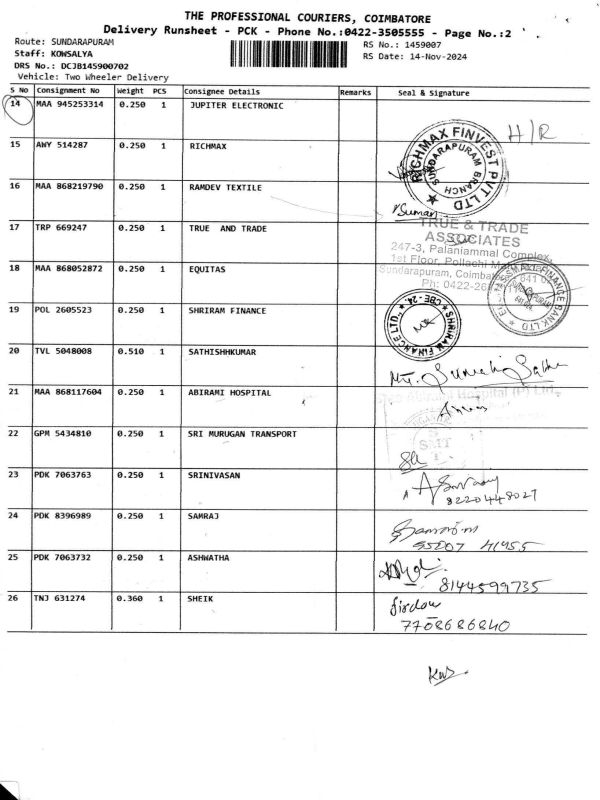 THE PROFESSIONAL COURIERS, COIMBATORE
Delivery Runsheet - PCK - Phone No.:0422-3505555 - Page No.:2
Route: SUNDARAPURAM
RS No.: 1459007
Staff: KOWSALYA
RS Date: 14-Nov-2024
DRS No.: DCJB145900702
Vehicle: Two Wheeler Delivery
S No Consignment No Weight PCS Consignee Details Remarks Seal & Signature
14 MAA 945253314 0.250 1 JUPITER ELECTRONIC
H/R
15 AWY 514287 0.250 1 RICHMAX
RICHMAX FINVEST PVT LTD
SUNDARAPURAM BRANCH
16 MAA 868219790 0.250 1 RAMDEV TEXTILE
Suman
17 TRP 669247 0.250 1 TRUE AND TRADE
TRUE & TRADE
ASSOCIATES
247-3, Palaniammal Complex,
1st Floor, Pollachi
Sundarapuram,
Ph: 0422-26
18 MAA 868052872 0.250 1 EQUITAS
FINANCE BANK LTD
19 POL 2605523 0.250 1 SHRIRAM FINANCE
SHRIRAM FINANCE LTD.
CBE - 24.
20 TVL 5048008 0.510 1 SATHISHHKUMAR
21 MAA 868117604 0.250 1 ABIRAMI HOSPITAL
Abirami Hospital (P) Ltd.,
22 GPM 5434810 0.250 1 SRI MURUGAN TRANSPORT
SMT
23 PDK 7063763 0.250 1 SRINIVASAN
8220448027
24 PDK 8396989 0.250 1 SAMRAJ
95007 41955
25 PDK 7063732 0.250 1 ASHWATHA
8144599735
26 TNJ 631274 0.360 1 SHEIK
7708686840